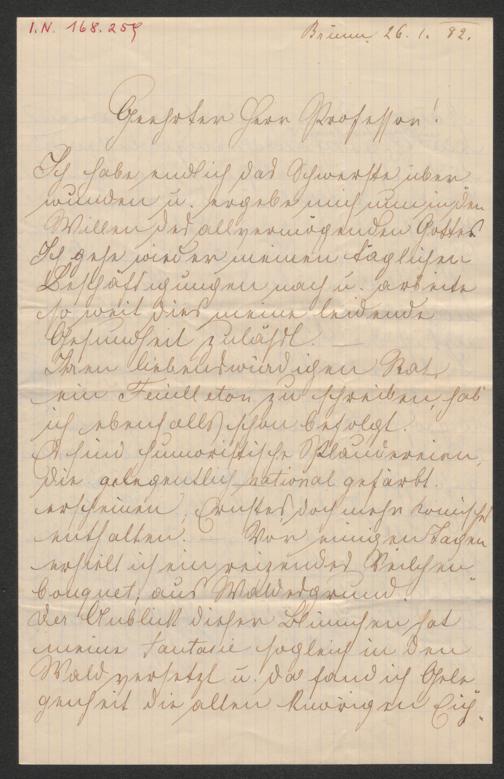 I.N. 168.259
Brünn 26. 1. 92.
Geehrter Herr Professor!
Ich habe endlich das Schwerste über
wunden u. ergebe mich nun in den
Willen des allvermögenden Gottes.
Ich gehe wieder meinen täglichen
Beschäftigungen nach u. arbeite
so weit dies meine leidende
Gesundheit zuläßt.
Ihren liebenswürdigen Rat,
ein Feuilleton zu schreiben, hab'
ich ebenfalls schon befolgt.
Es sind humoristische Plaudereien,
die gelegentlich national gefärbt
erscheinen, Ernstes, doch mehr komisches
enthalten. — Vor einigen Tagen
erhielt ich ein reizendes Veilchen
bouquet, aus Waldesgrund.
Der Anblick dieser Blümchen hat
meine Fantasie sogleich in den
Wald versetzt u. da fand ich Gele-
genheit die alten knorrigen Eich-